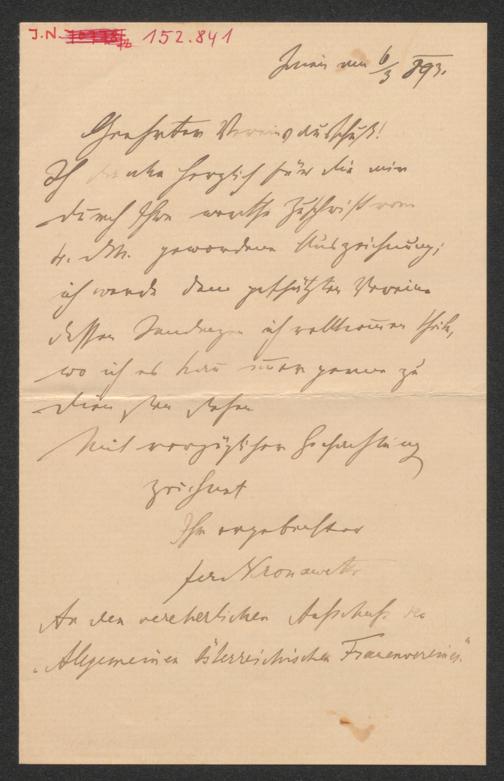 J.N. 152.841
Wien am 6/3 893.
Geehrter Vereinsausschuß!
Ich danke herzlich für die mir
durch Ihre werthe Zuschrift vom
4. d.M. gewordene Auszeichnung;
ich werde dem geschätzten Vereine
dessen Tendenzen ich vollkommen theile,
wo ich es kann immer gerne zu
Diensten stehen
Mit vorzüglicher Hochachtung
zeichnet
Ihr ergebenster
Ferd Kronawetter
An den verehrlichen Ausschuß des
„Allgemeinen österreichischen Frauenvereines“